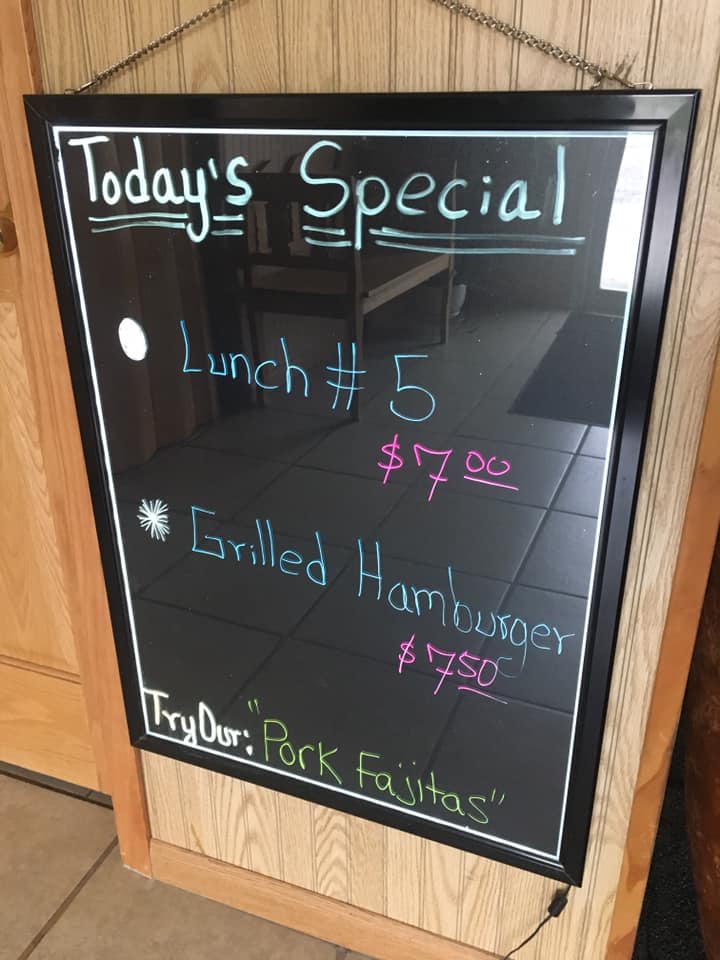 Today's Special
Lunch # 5
$7.00
Grilled Hamburger
$7.50
Try Our: "Pork Fajitas"